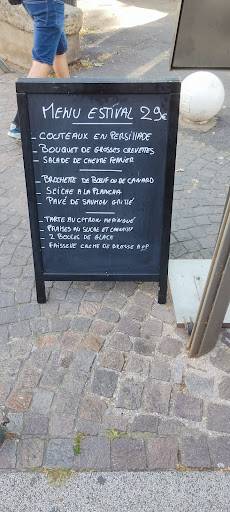 MENU ESTIVAL 29€
- COUTEAUX EN PERSILLADE
- BOUQUET DE GROSSES CREVETTES
- SALADE DE CHEVRE FERMIER
- BROCHETTE DE BŒUF OU DE CANARD
- SEICHE A LA PLANCHA
- PAVÉ DE SAUMON GRILLÉ
- TARTE AU CITRON MERINGUÉ
- FRAISES AU SUCRE ET
- 2 BOULES DE GLACE
- FAISSELLE DE BROSSE AOP